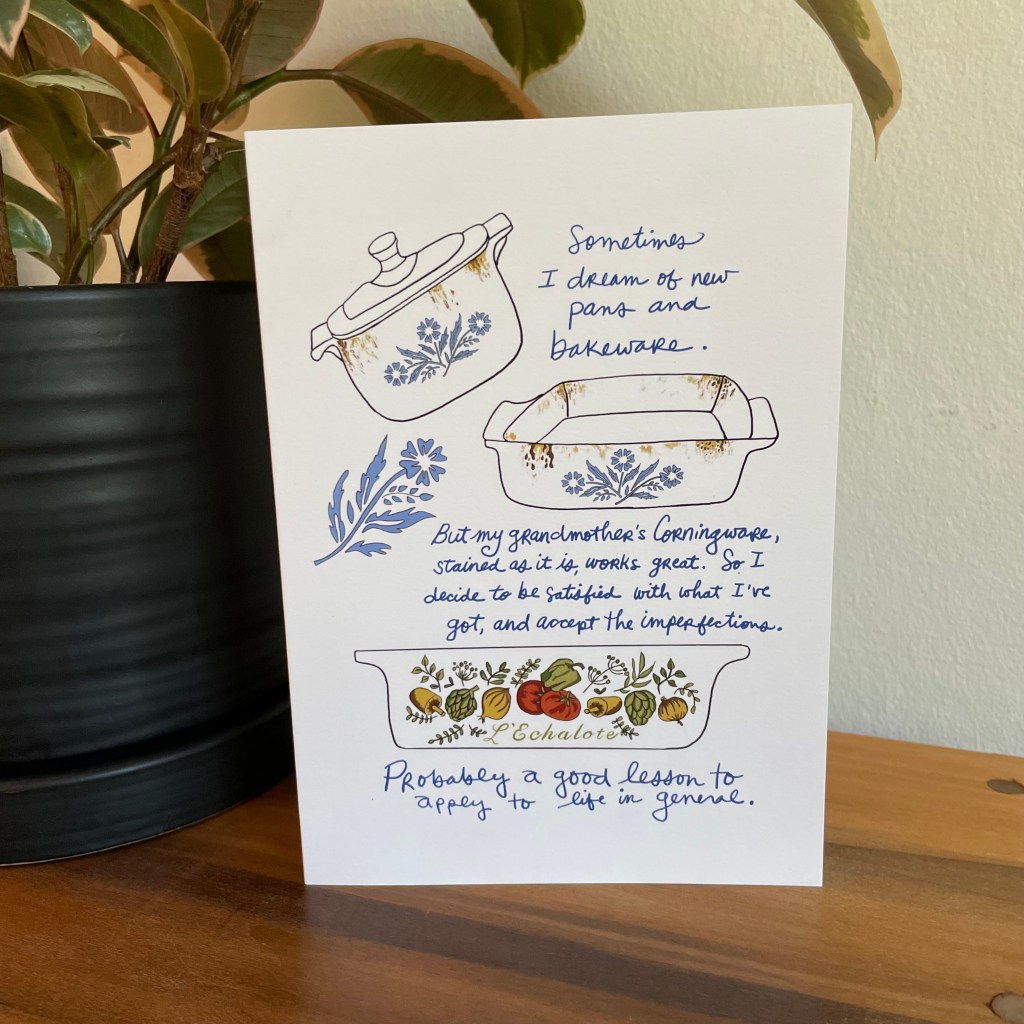 Sometimes
I dream of new
pans and
bakeware.
But my grandmother's Corningware,
stained as it is, works great. So I
decide to be satisfied with what I've
got, and accept the imperfections.
L'Echalote
Probably a good lesson to
apply to life in general.